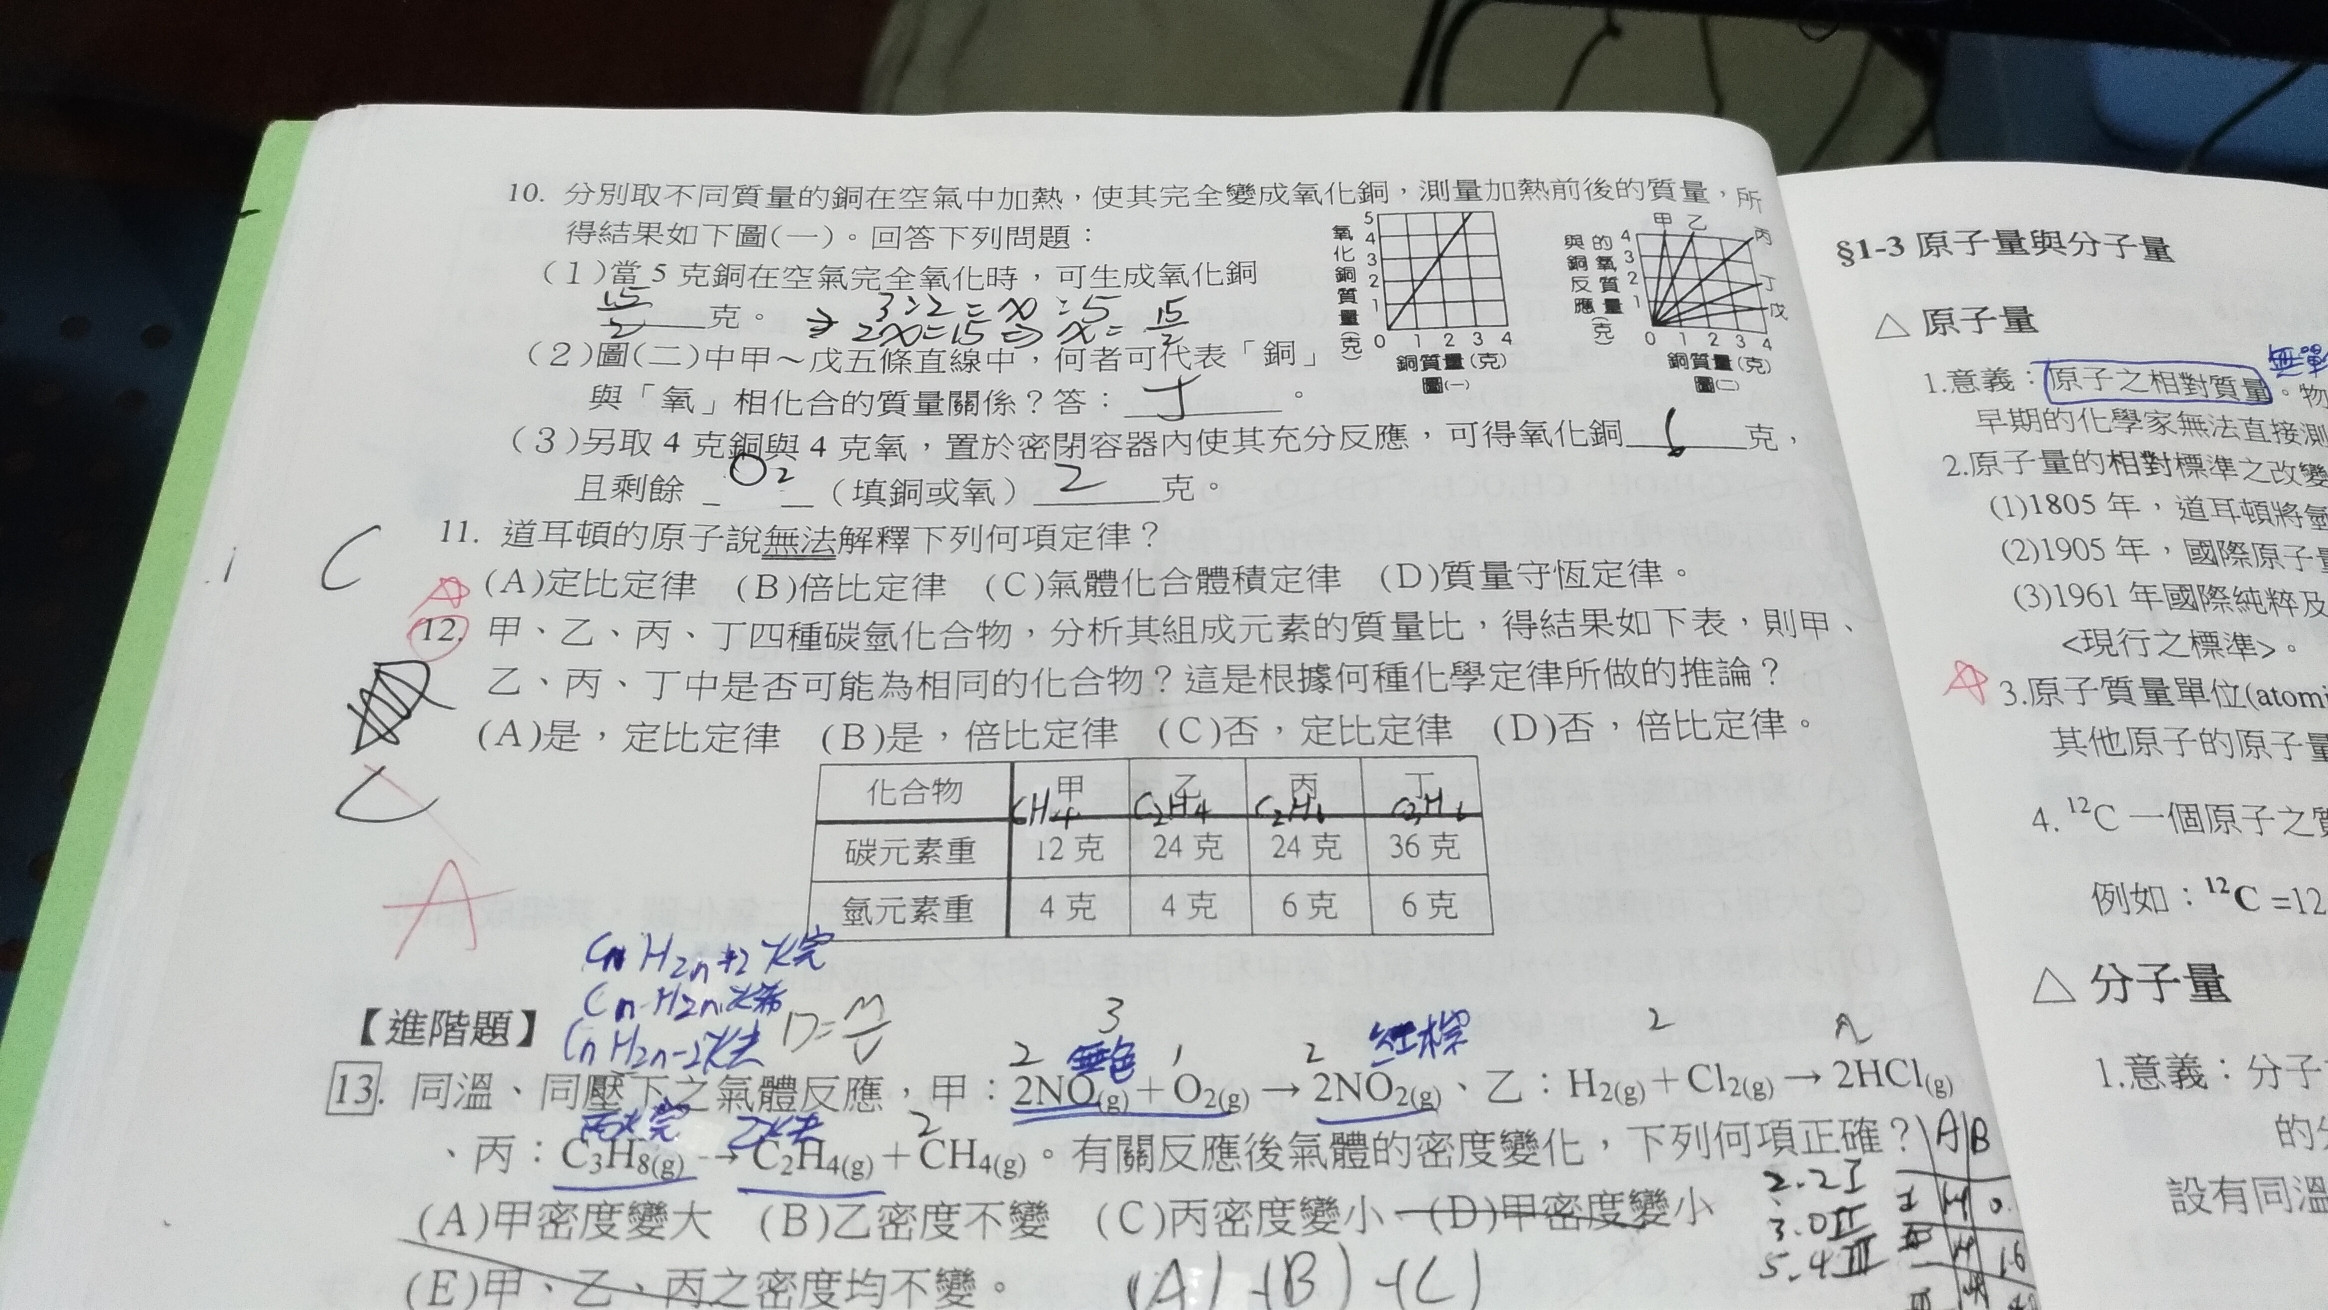 10. 分別取不同質量的銅在空氣中加熱，使其完全變成氧化銅，測量加熱前後的質量，所
得結果如下圖(一)。回答下列問題：
(1)當5克銅在空氣完全氧化時，可生成氧化銅
15/2 克。 ⇒ 3:2=x:5
2x=15 ⇒ x=15/2
(2)圖(二)中甲～戊五條直線中，何者可代表「銅」
與「氧」相化合的質量關係？答：丁。
氧化銅質量(克)
5
4
3
2
1
0 1 2 3 4
銅質量(克)
圖(一)
與銅反應的氧質量(克)
甲 乙 丙 丁 戊
4
3
2
1
0 1 2 3 4
銅質量(克)
圖(二)
(3)另取4克銅與4克氧，置於密閉容器內使其充分反應，可得氧化銅 6 克，
且剩餘 O2 （填銅或氧） 2 克。
C
11. 道耳頓的原子說無法解釋下列何項定律？
(A)定比定律 (B)倍比定律 (C)氣體化合體積定律 (D)質量守恆定律。
12. 甲、乙、丙、丁四種碳氫化合物，分析其組成元素的質量比，得結果如下表，則甲、
乙、丙、丁中是否可能為相同的化合物？這是根據何種化學定律所做的推論？
(A)是，定比定律 (B)是，倍比定律 (C)否，定比定律 (D)否，倍比定律。
C
A
化合物 甲 乙 丙 丁
CH4 C2H4 C2H6 C3H6
碳元素重 12克 24克 24克 36克
氫元素重 4克 4克 6克 6克
CnH2n+2 烷
CnH2n 烯
CnH2n-2 炔
D=M/V
【進階題】
3 2
2 無色 1 2 紅棕 2
13. 同溫、同壓下之氣體反應，甲：2NO(g)+O2(g)→2NO2(g)、乙：H2(g)+Cl2(g)→2HCl(g)
丙烷 2
、丙：C3H8(g)→C2H4(g)+CH4(g)。有關反應後氣體的密度變化，下列何項正確？
(A)甲密度變大 (B)乙密度不變 (C)丙密度變小 (D)甲密度變小
(E)甲、乙、丙之密度均不變。
(A)(B)(C)
A B
2.2 I
3.0 II
5.4 III
§1-3 原子量與分子量
△ 原子量
1.意義：原子之相對質量。物
早期的化學家無法直接測
2.原子量的相對標準之改變
(1)1805 年，道耳頓將氫
(2)1905 年，國際原子量
(3)1961 年國際純粹及
<現行之標準>。
3.原子質量單位(atomi
其他原子的原子量
4. ¹²C 一個原子之質
例如：¹²C =12
△ 分子量
1.意義：分子
的分
設有同溫